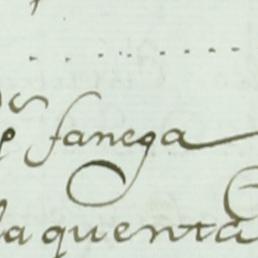 fanega
la quenta